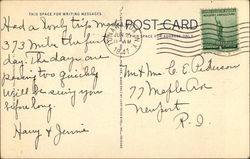 THIS SPACE FOR WRITING MESSAGES
POST CARD
Had a lovely trip made
373 miles the first
day. The days are
going too quickly
will be seeing you
before long.
Harry & Jennie
JUN 25
11 AM
1941
Mr & Mrs C. E. Anderson
77 Maple Ave
Newport
R. I.